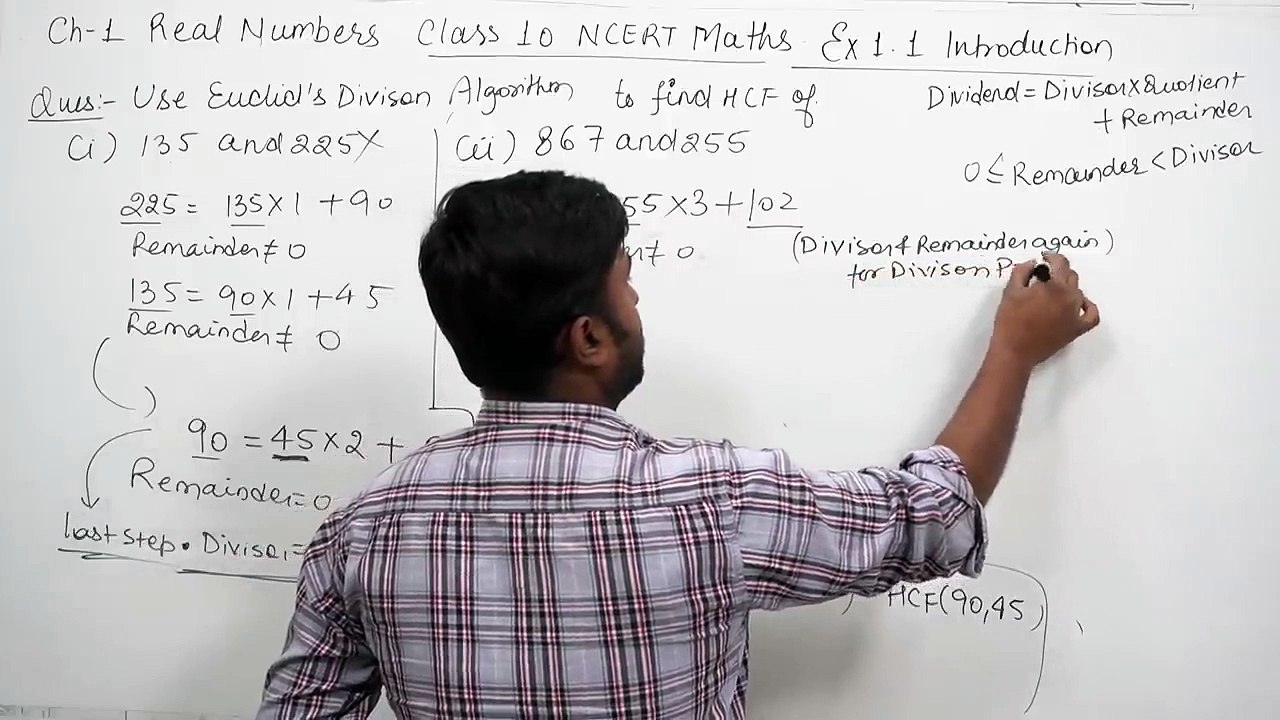 Ch-1 Real Numbers Class 10 NCERT Maths Ex 1.1 Introduction
Ques:- Use Euclid's Divison Algorithm to find HCF of
(i) 135 and 225
(iii) 867 and 255
Dividend = Divisor × Quotient
+ Remainder
0 ≤ Remainder < Divisor
225 = 135 × 1 + 90
Remainder ≠ 0
135 = 90 × 1 + 45
Remainder ≠ 0
90 = 45 × 2 +
Remainder = 0
last step. Divisor =
55 × 3 + 102
≠ 0
(Divisor & Remainder again)
for Divison
HCF(90,45)